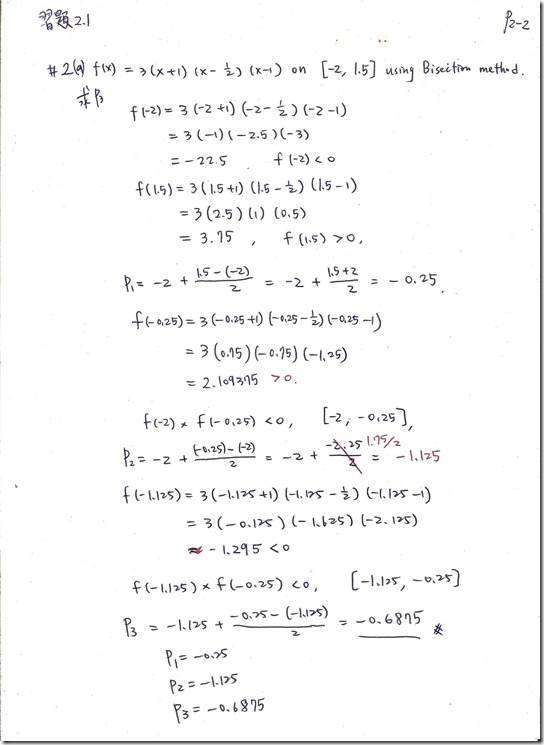 習題2.1
P2-2
#2(a) f(x) = 3(x+1)(x-1/2)(x-1) on [-2, 1.5] using Bisection method.
求P3
f(-2) = 3(-2+1)(-2-1/2)(-2-1)
= 3(-1)(-2.5)(-3)
= -22.5 f(-2)<0
f(1.5) = 3(1.5+1)(1.5-1/2)(1.5-1)
= 3(2.5)(1)(0.5)
= 3.75 , f(1.5)>0,
P1 = -2 + (1.5-(-2))/2 = -2 + (1.5+2)/2 = -0.25.
f(-0.25) = 3(-0.25+1)(-0.25-1/2)(-0.25-1)
= 3(0.75)(-0.75)(-1.25)
= 2.109375 >0.
f(-2) × f(-0.25) <0, [-2, -0.25],
P2 = -2 + ((-0.25)-(-2))/2 = -2 + -2.25/2 1.75/2 = -1.125
f(-1.125) = 3(-1.125+1)(-1.125-1/2)(-1.125-1)
= 3(-0.125)(-1.625)(-2.125)
≈ -1.295 <0
f(-1.125) × f(-0.25) <0, [-1.125, -0.25]
P3 = -1.125 + (-0.25-(-1.125))/2 = -0.6875 *
P1 = -0.25
P2 = -1.125
P3 = -0.6875